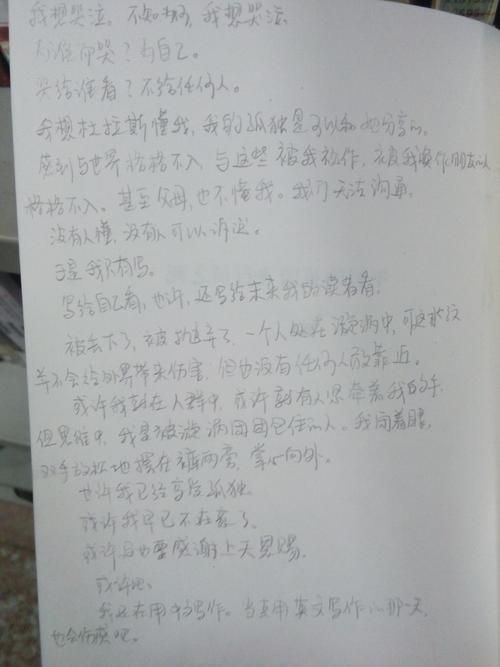 我想哭泣。不知为何,我想哭泣。
为谁而哭?为自己。
哭给谁看?不给任何人。
我想杜拉斯懂我,我的孤独是可以和她分享的。
感到与世界格格不入,与这些被我称作,被我唤作朋友的人
格格不入。甚至父母,也不懂我。我们无法沟通,
没有人懂,没有人可以诉说。
于是我只有写。
写给自己看,也许,还写给未来我的读者看。
被丢下了,被抛弃了,一个人处在漩涡中,可这水纹
并不会给外界带来伤害,但也没有任何人敢靠近。
或许我站在人群中,或许就有人思牵着我的手,
但思绪中,我是被漩涡团团包住的人。我闭着眼,
双手放松地摆在裤两旁,掌心向外。
也许我已经享受孤独。
或许我早已不在意了。
或许也要感谢上天恩赐。
或许吧。
我还在用中文写作。当真用英文写作的那一天,
也会有吧。